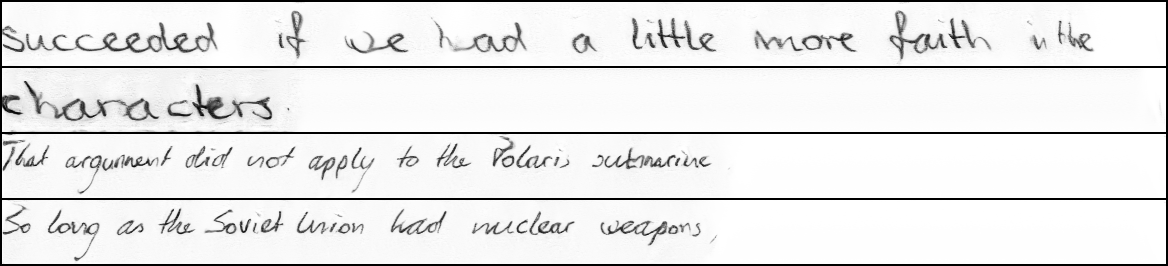 succeeded if we had a little more faith in the
characters.
That argument did not apply to the Polaris submarine.
So long as the Soviet Union had nuclear weapons,